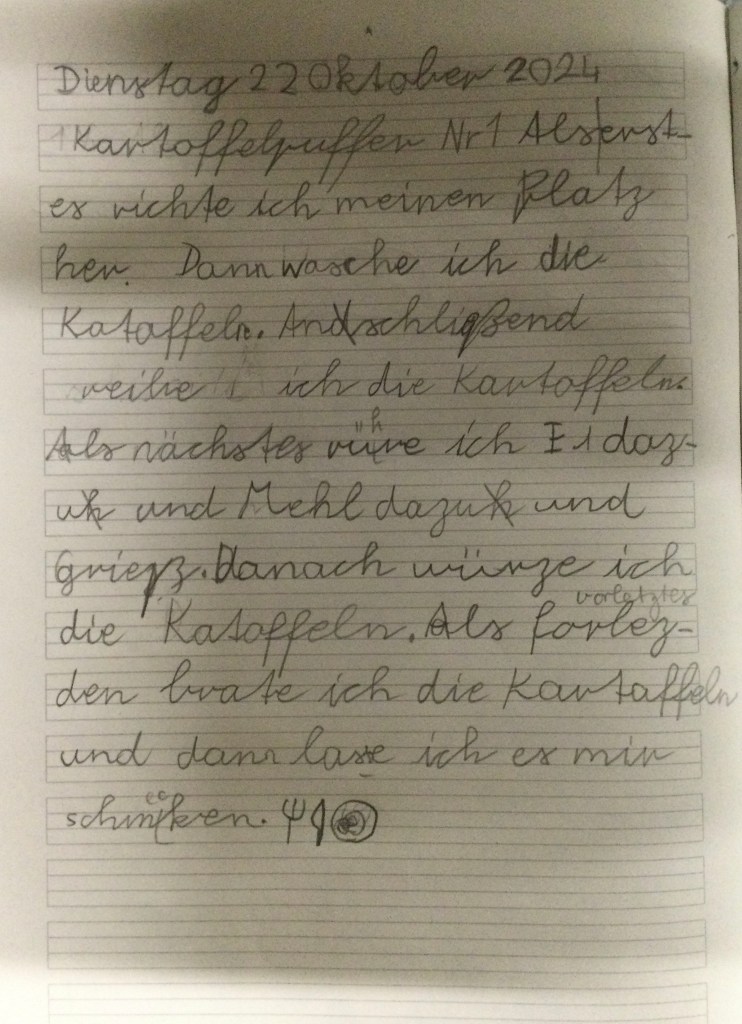 Dienstag 22 Oktober 2024
1 Kartoffelpuffer Nr 1 Als erst-
es richte ich meinen Platz
her. Dann wasche ich die
Kataffeln. Andschließend
reibe ich die Kartoffeln.
Als nächstes rühre ich Ei daz-
uh und Mehl dazuh und
Grieß. Danach würze ich
vorletztes
die Katoffeln. Als forlez-
den brate ich die Kartaffeln
und dann lasse ich es mir
schmecken.